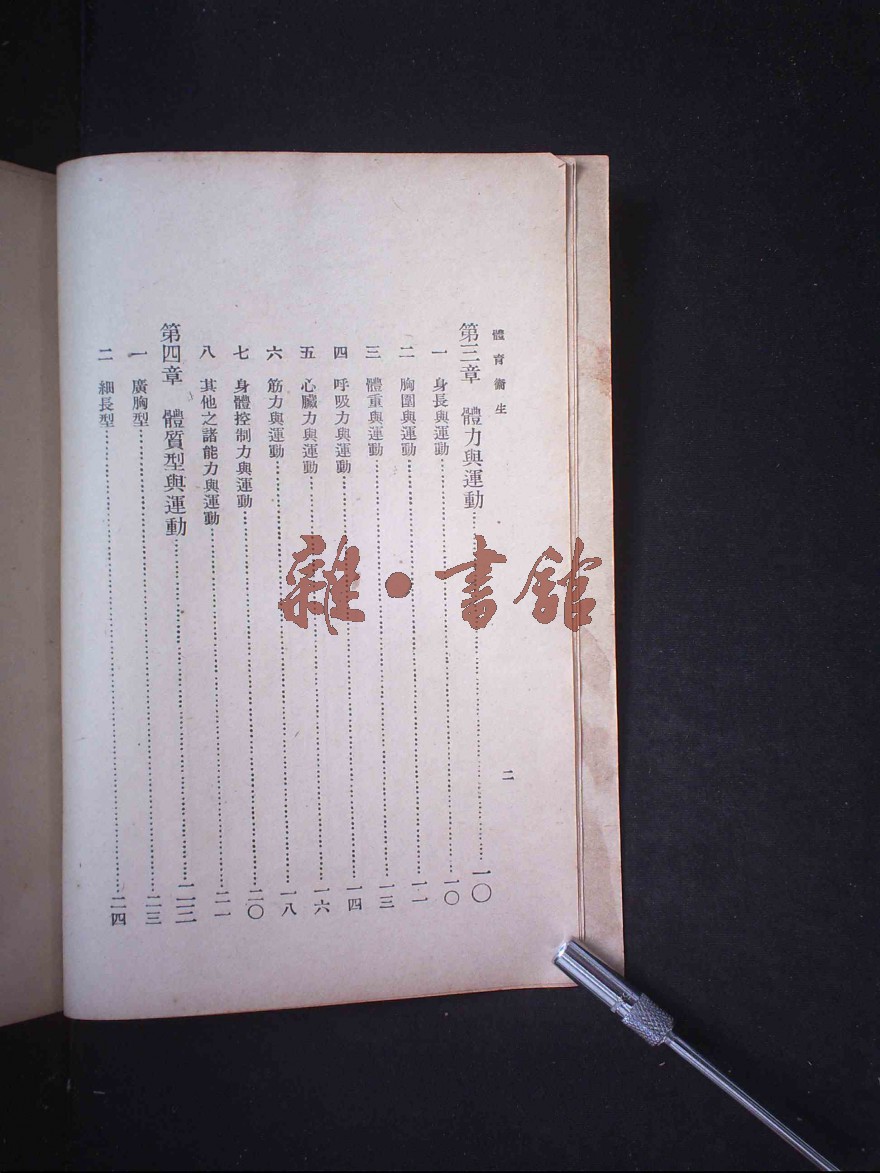 體育衛生
二
第三章 體力與運動……一〇
一 身長與運動……一〇
二 胸圍與運動……一一
三 體重與運動……一三
四 呼吸力與運動……一四
五 心臟力與運動……一六
六 筋力與運動……一八
七 身體控制力與運動……二〇
八 其他之諸能力與運動……二一
第四章 體質型與運動……二三
一 廣胸型……二三
二 細長型……二四
雜·書館